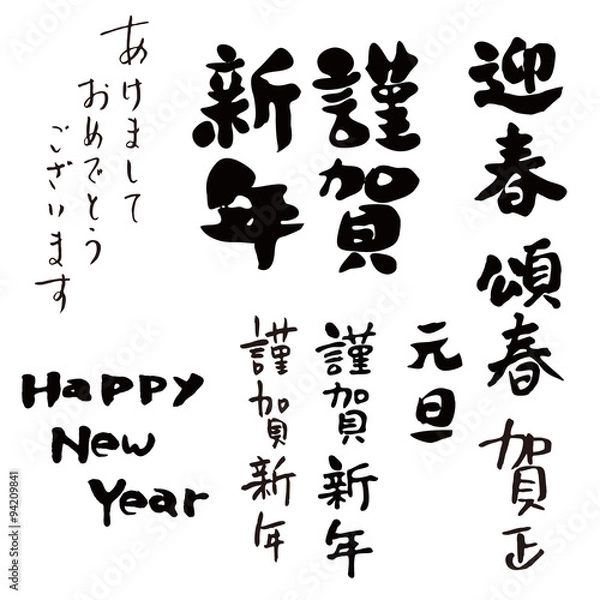 迎春
頌春
賀正
謹賀
新年
元旦
謹賀新年
謹賀新年
あけまして
おめでとう
ございます
Happy
New
Year
Adobe Stock | #94209841